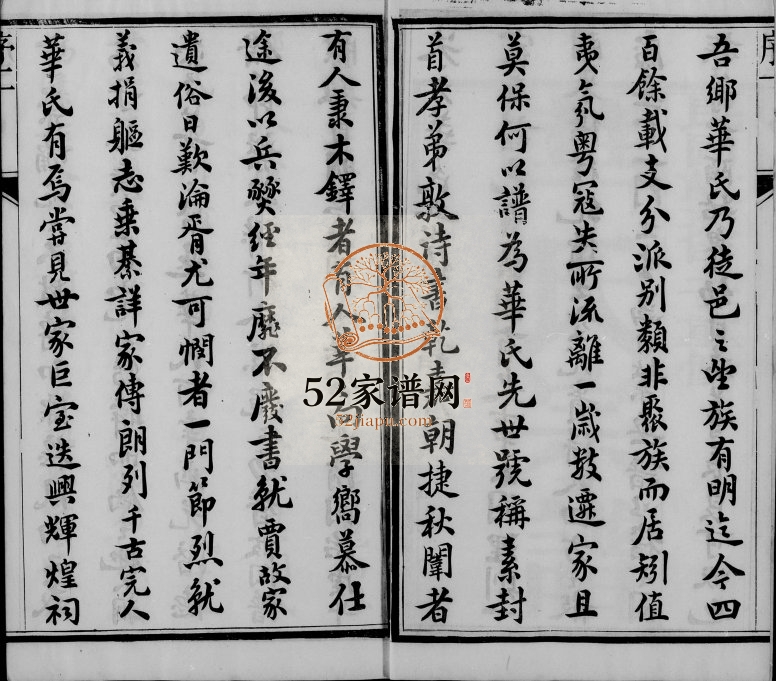 序一
吾鄉華氏乃徒邑之望族有明迄今四
百餘載支分派別類非聚族而居矧值
夷氛粵寇失所流離一歲數遷家且
莫保何以譜為華氏先世號稱素封
首孝弟敦詩書乾嘉朝捷秋闈者
有人秉木鐸者有人率向學嚮慕仕
途後以兵燹經年靡不廢書就賈故家
遺俗日歎淪胥尤可憫者一門節烈就
義捐軀志乘綦詳家傳朗列千古完人
華氏有焉嘗見世家巨室迭興輝煌祠
序二
52家谱网
52jiapu.com